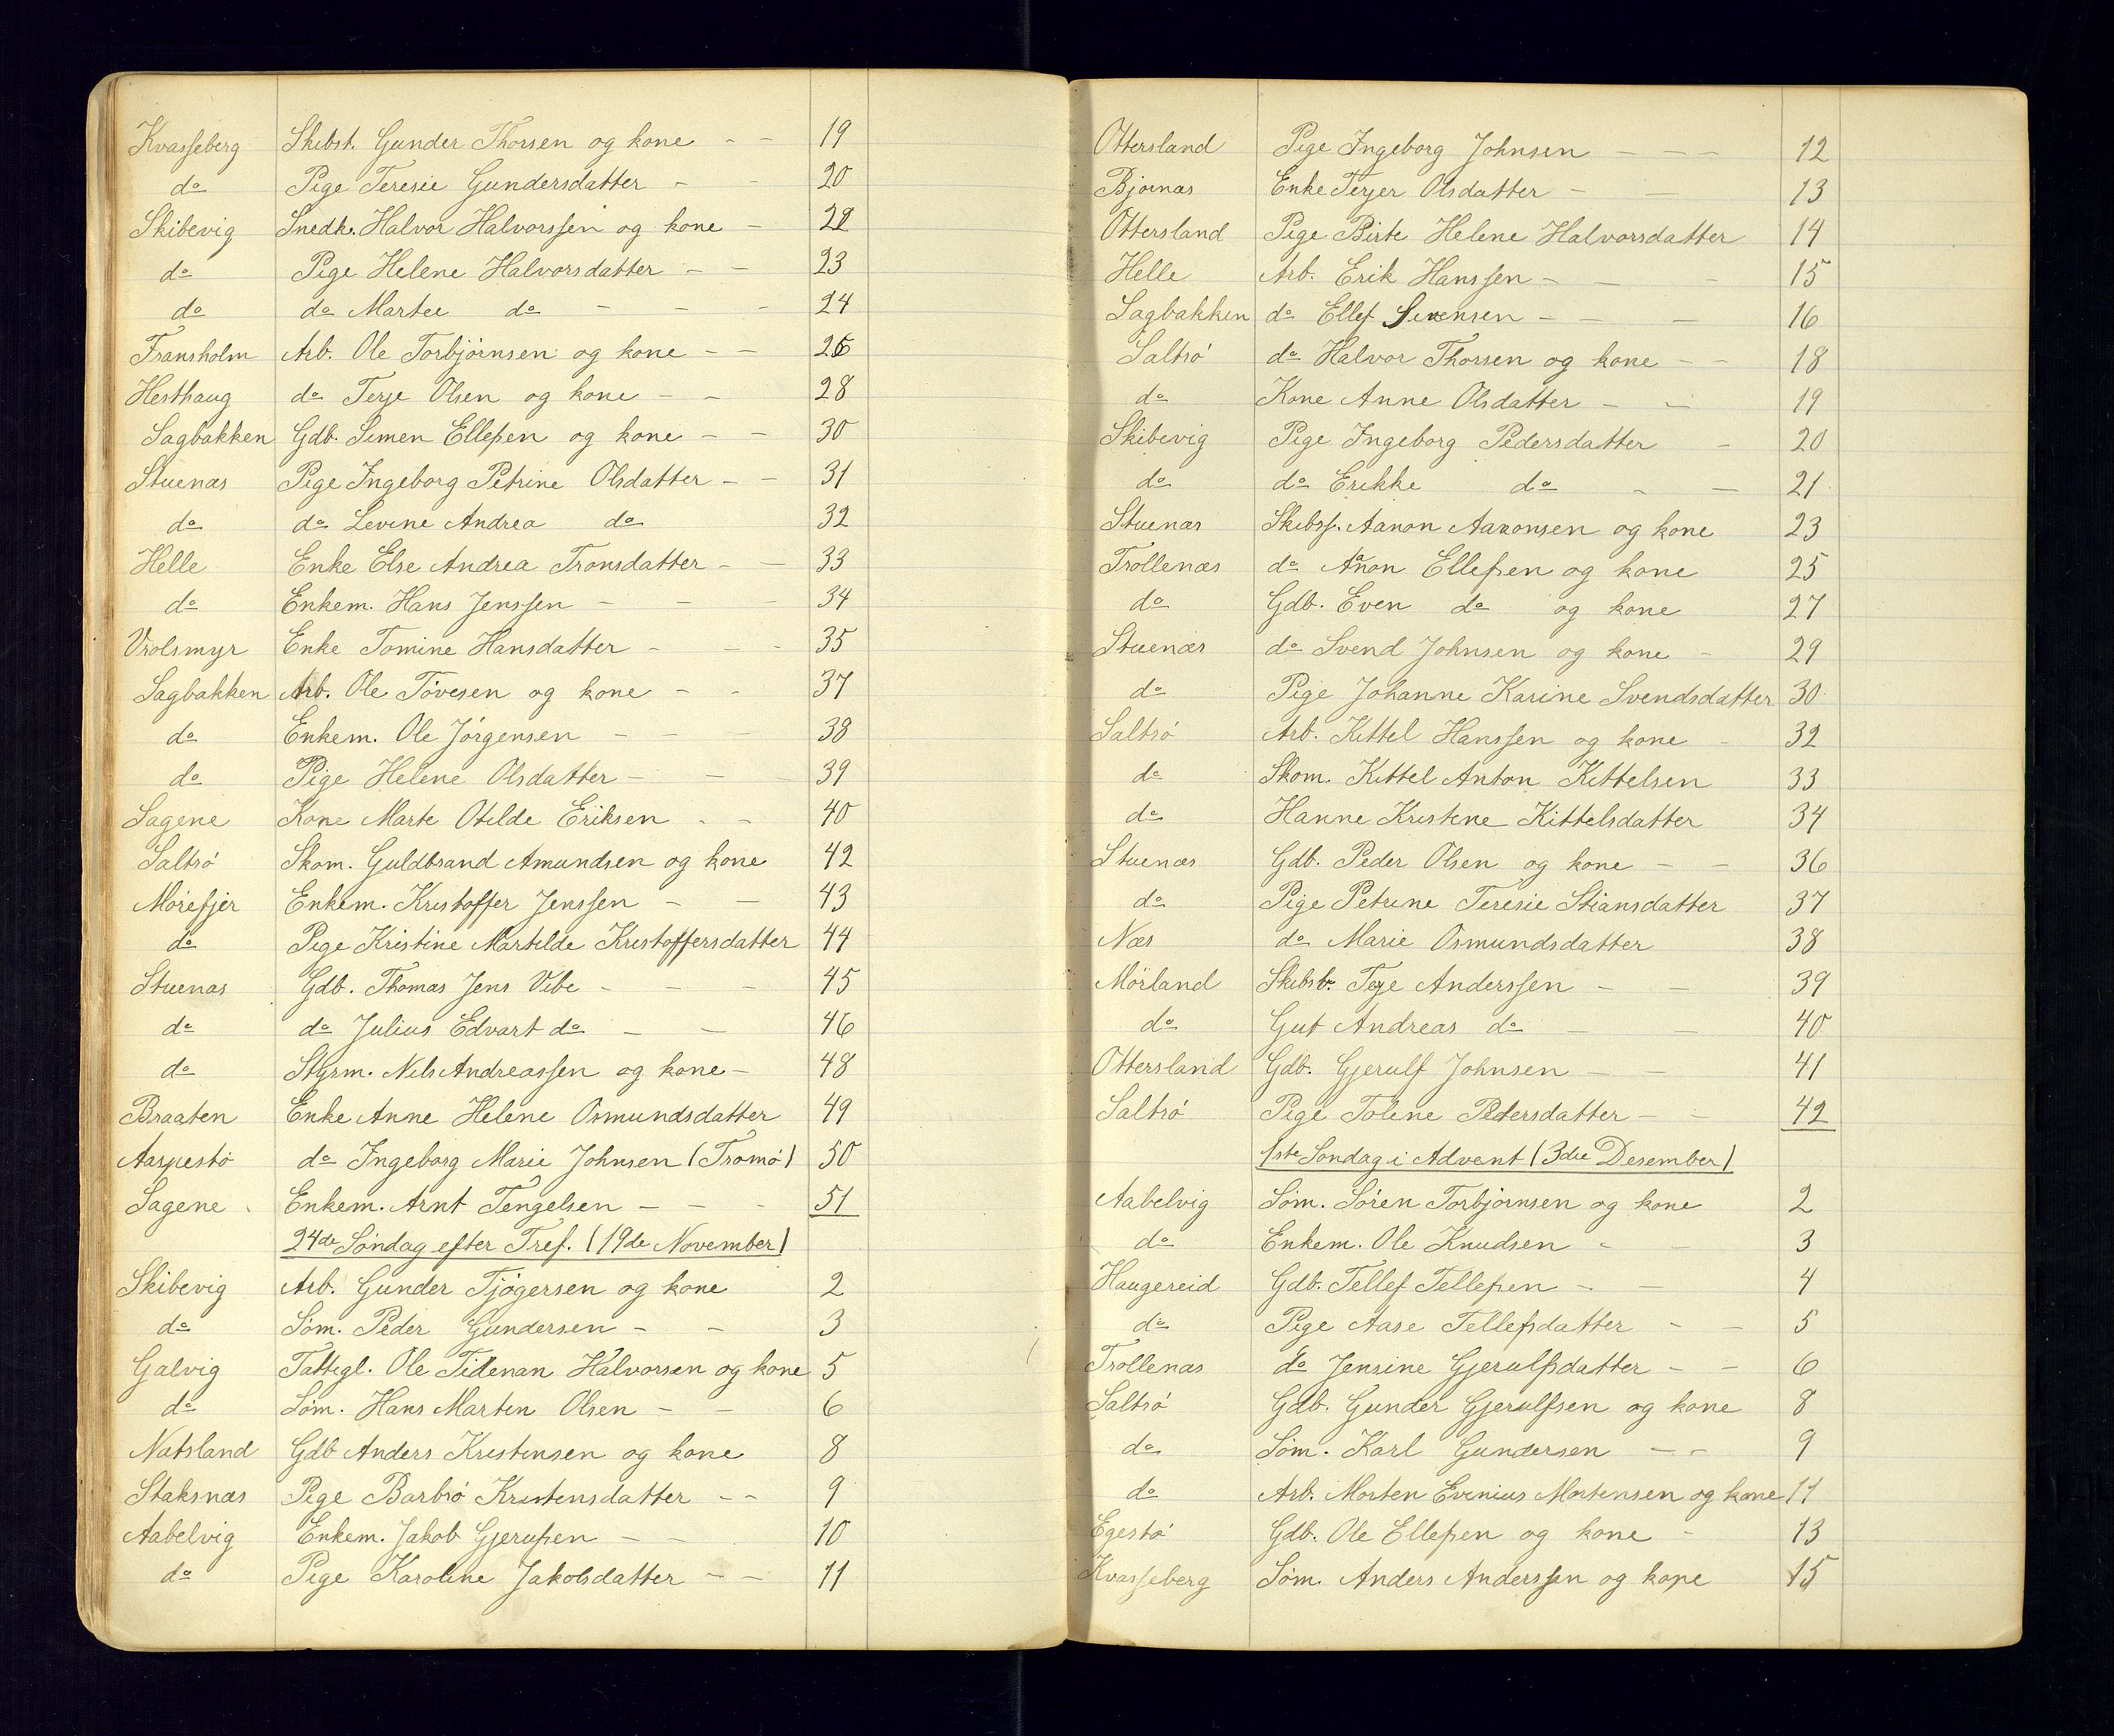 Kvasseberg Skibst. Gunder Thorsen og kone - - 19
do Pige Teresie Gundersdatter - - 20
Skibevig Snedk. Halvor Halvorssen og kone - 22
do Pige Helene Halvorsdatter - - 23
do do Martee do - - - 24
Fransholm Arb. Ole Torbjørnsen og kone - - 26
Hesthaug do Terje Olsen og kone - - 28
Sagbakken Gdb. Simen Ellefsen og kone - - 30
Stuenæs Pige Ingeborg Petrine Olsdatter - - 31
do do Levine Andrea do 32
Helle Enke Else Andrea Tronsdatter - - 33
do Enkem. Hans Jenssen - - - 34
Vrolsmyr Enke Tomine Hansdatter - - - 35
Sagbakken Arb. Ole Tøvesen og kone - - 37
do Enkem. Ole Jørgensen - - - 38
do Pige Helene Olsdatter - - - 39
Sagene Kone Marte Otilde Eriksen - - 40
Saltrø Skom. Guldbrand Amundsen og kone 42
Mørefjer Enkem. Kristoffer Jenssen - - 43
do Pige Kristine Martilde Kristoffersdatter 44
Stuenæs Gdb. Thomas Jens Vibe - - - 45
do do Julius Edvart do - - 46
do Styrm. Nils Andreassen og kone - 48
Braaten Enke Anne Helene Osmundsdatter 49
Aarpestø do Ingeborg Marie Johnsen (Tromø) 50
Sagene Enkem. Arnt Tengelsen - - - 51
24de Søndag efter Tref. (19de November)
Skibevig Arb. Gunder Tjøgersen og kone 2
do Søm. Peder Gundersen - - 3
Galvig Fattigl. Ole Tideman Halvorsen og kone 5
do Søm. Hans Martin Olsen - - 6
Natsland Gdb Anders Kristensen og kone 8
Staksnæs Pige Barbrø Kristensdatter - - 9
Aabelvig Enkem. Jakob Gjerufsen - - 10
do Pige Karoline Jakobsdatter - - 11
Ottersland Pige Ingeborg Johnsen - - - 12
Bjornæs Enke Terjer Olsdatter - - 13
Ottersland Pige Birte Helene Halvorsdatter 14
Helle Arb. Erik Hanssen - - - 15
Sagbakken do Ellef Simensen - - - 16
Saltrø do Halvor Thorsen og kone - - 18
do Kone Anne Olsdatter - - 19
Skibevig Pige Ingeborg Pedersdatter - 20
do do Erikke do - - 21
Stuenæs Skibsf. Aanon Aanonsen og kone 23
Trollenæs do Aanon Ellefsen og kone 25
do Gdb. Even do og kone 27
Stuenæs do Svend Johnsen og kone - 29
do Pige Johanne Karine Svendsdatter 30
Saltrø Arb. Kittel Hanssen og kone - 32
do Skom. Kittel Anton Kittelsen 33
do Hanne Kristine Kittelsdatter 34
Stuenæs Gdb. Peder Olsen og kone - - 36
do Pige Petrine Teresie Stiansdatter 37
Næs do Marie Osmundsdatter 38
Mørland Skibst. Terje Anderssen - - 39
do Gut Andreas do - - 40
Ottersland Gdb. Gjerulf Johnsen - - 41
Saltrø Pige Toline Pedersdatter - - 42
1ste Søndag i Advent (3die Desember)
Aabelvig Søm. Søren Torbjørnsen og kone 2
do Enkem. Ole Knudsen - - 3
Haugereid Gdb. Tellef Tellefsen - - 4
do Pige Aase Tellefsdatter - - 5
Trollenæs do Jensine Gjerulfsdatter - - 6
Saltrø Gdb. Gunder Gjerulfsen og kone 8
do Søm. Karl Gundersen - - 9
do Arb. Morten Evinius Mortensen og kone 11
Egestø Gdb. Ole Ellefsen og kone - 13
Kvasseberg Søm. Anders Anderssen og kone 15